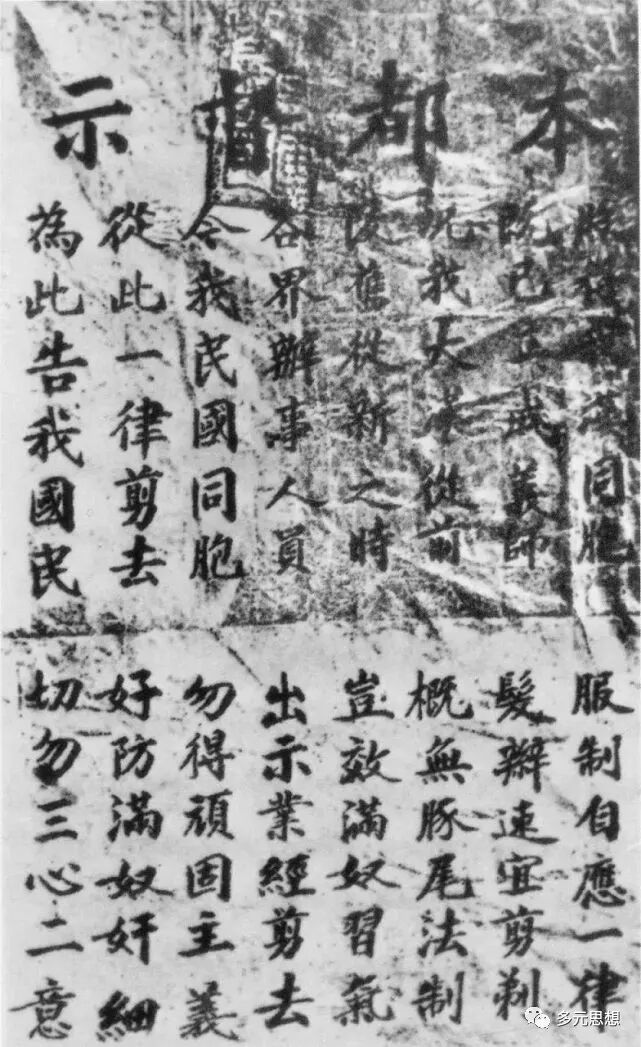 本都督示
同胞 服制自應一律
已 義師 髮辮速宜剪剃
況我大漢從前 概無豚尾法制
舊從新之時 豈效滿奴習氣
各界辦事人員 出示業經剪去
令我民國同胞 勿得頑固主義
從此一律剪去 好防滿奴奸細
為此告我國民 切勿三心二意
多元思想